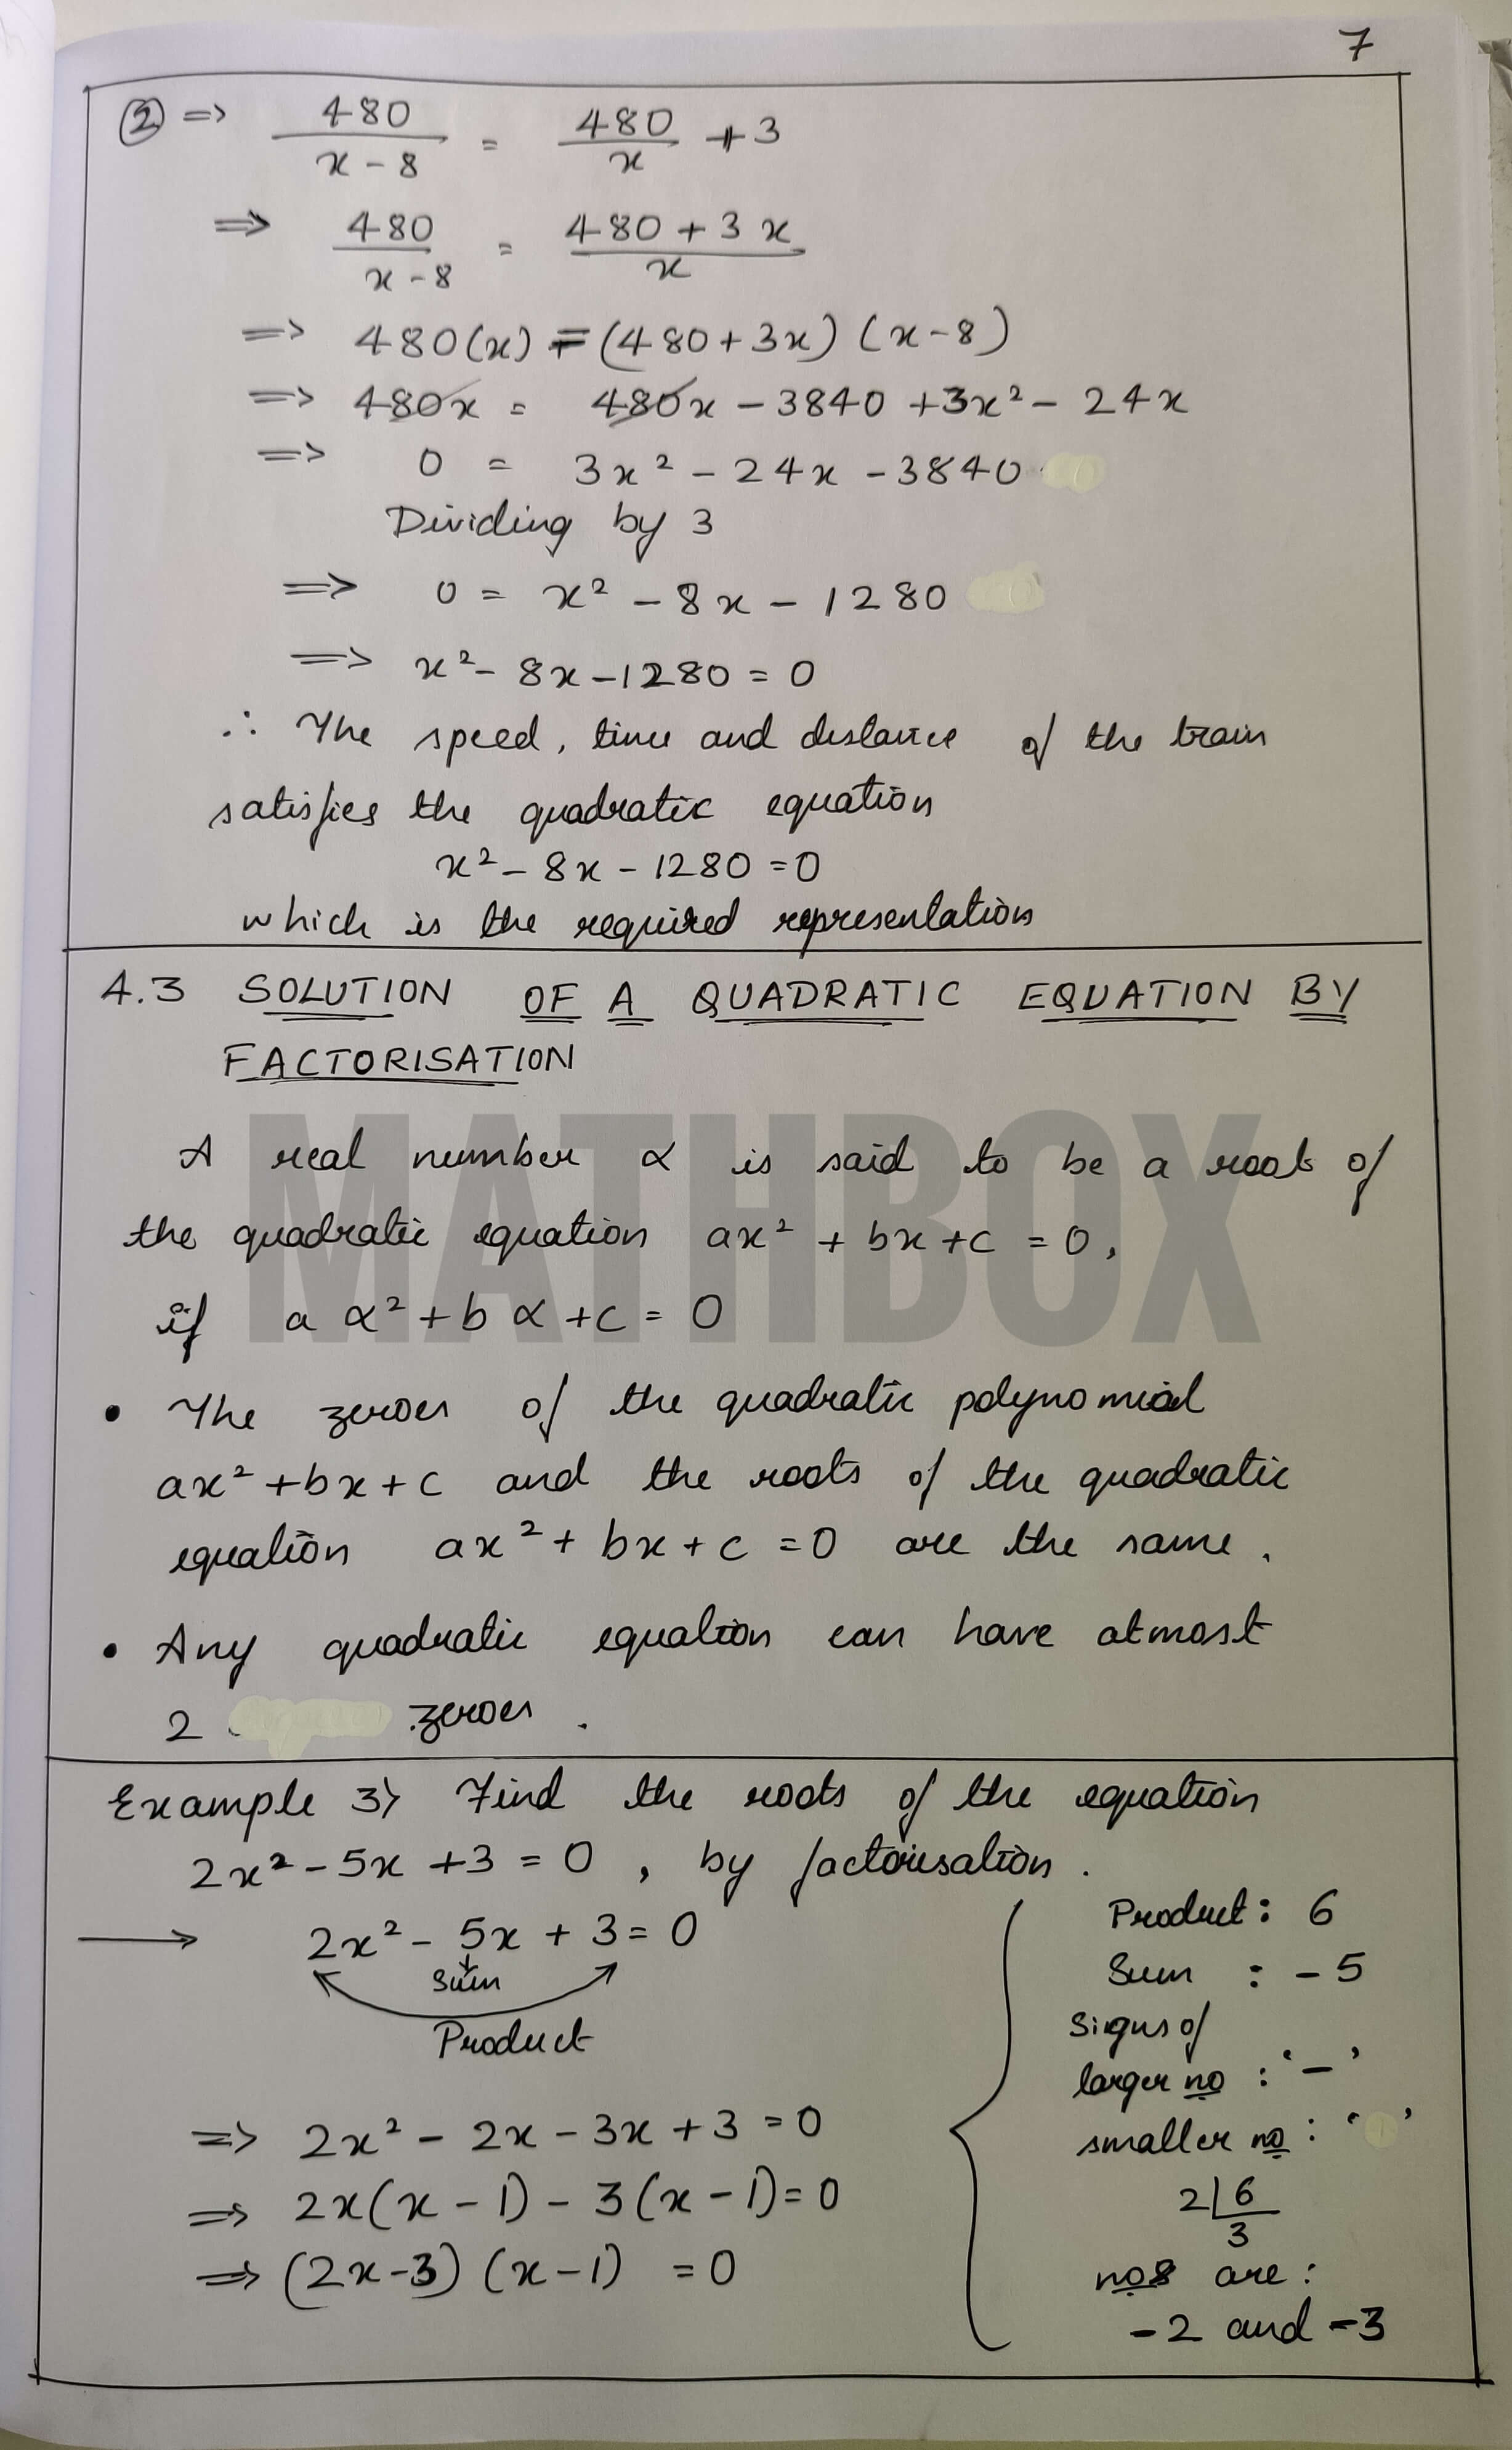 7
② => 480/(x - 8) = 480/x + 3
=> 480/(x - 8) = (480 + 3x)/x
=> 480(x) = (480 + 3x) (x - 8)
=> 480x = 480x - 3840 + 3x² - 24x
=> 0 = 3x² - 24x - 3840
Dividing by 3
=> 0 = x² - 8x - 1280
=> x² - 8x - 1280 = 0
∴ The speed, time and distance of the train
satisfies the quadratic equation
x² - 8x - 1280 = 0
which is the required representation
4.3 SOLUTION OF A QUADRATIC EQUATION BY
FACTORISATION
MATHBOX
A real number α is said to be a root of
the quadratic equation ax² + bx + c = 0,
if a α² + b α + c = 0
• The zeroes of the quadratic polynomial
ax² + bx + c and the roots of the quadratic
equation ax² + bx + c = 0 are the same.
• Any quadratic equation can have atmost
2 zeroes.
Example 3) Find the roots of the equation
2x² - 5x + 3 = 0, by factorisation.
→ 2x² - 5x + 3 = 0
Sum
Product
=> 2x² - 2x - 3x + 3 = 0
=> 2x(x - 1) - 3(x - 1) = 0
=> (2x - 3) (x - 1) = 0
Product: 6
Sum : - 5
Signs of
larger no : ' - '
smaller no : ' '
2|6
3
nos are:
- 2 and - 3